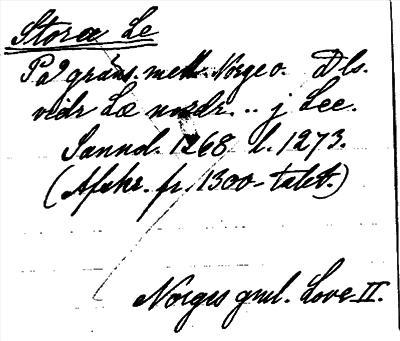 Stora Le
På gräns. mell. Norge o. Dls.
vidr Læ nordr... j Lee.
Sannol. 1268 l. 1273.
(Afskr. fr. 1300-talet.)
Norges gml. Love II.